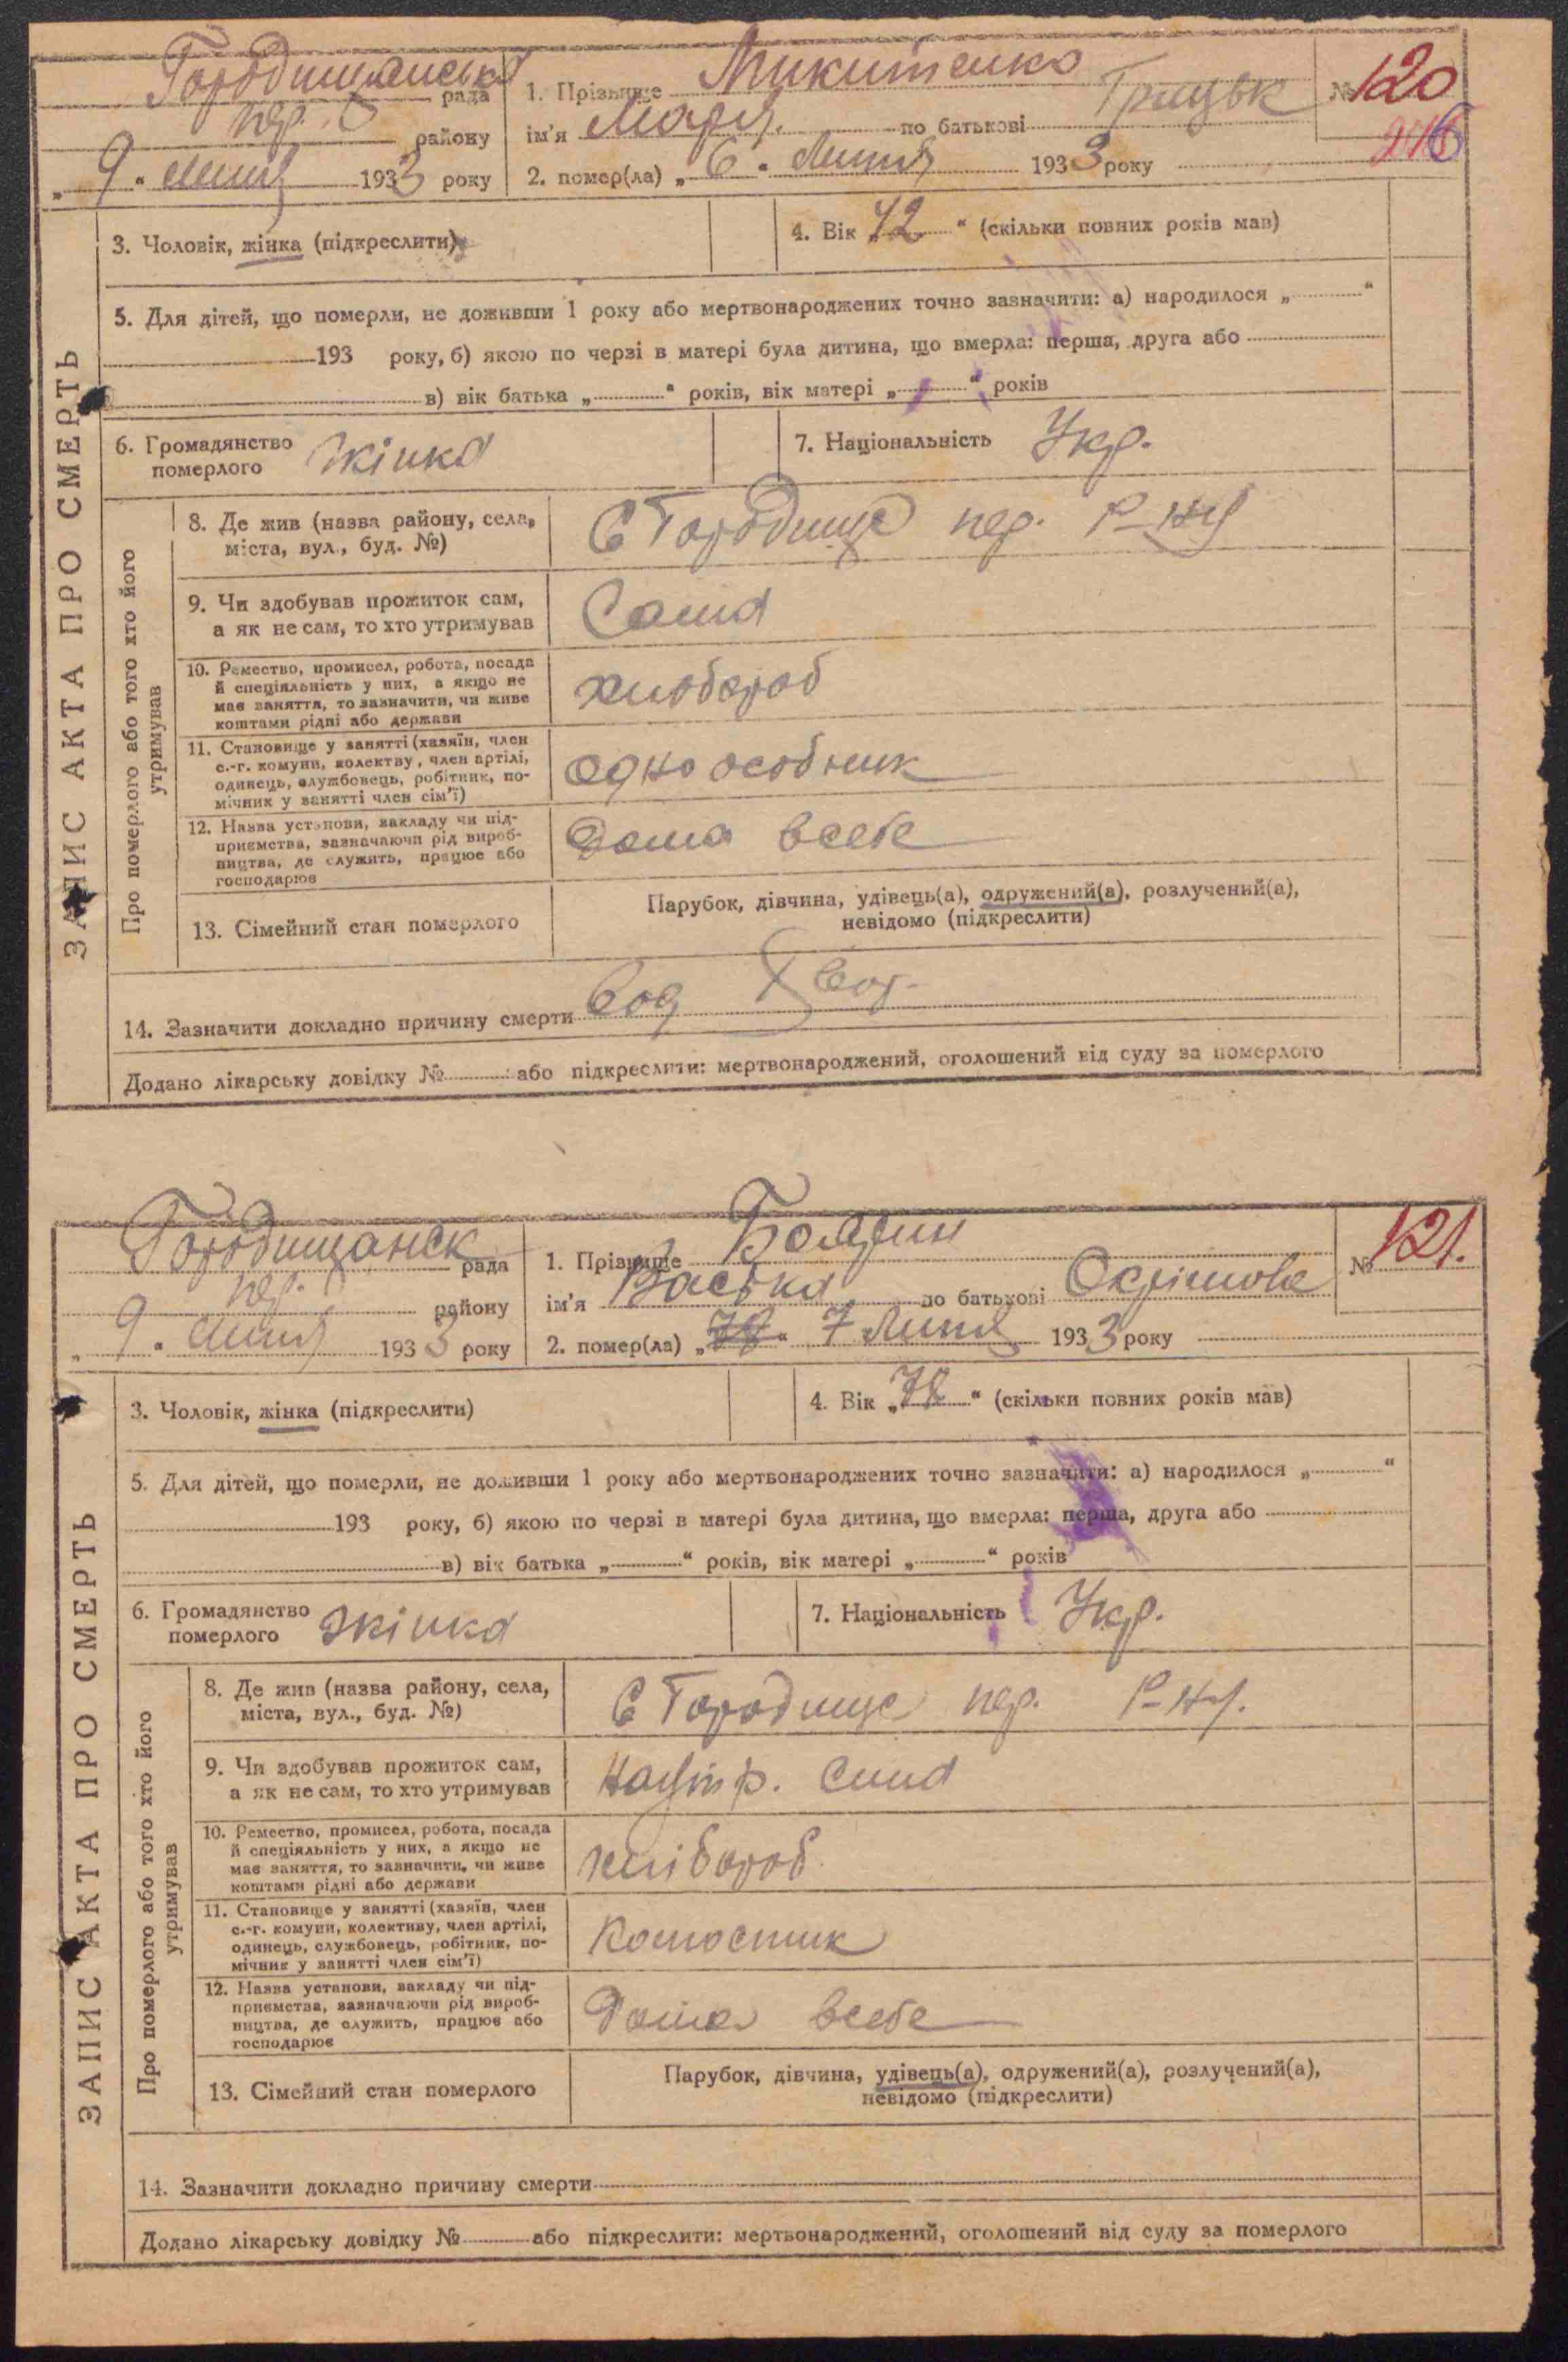 Городищанська рада
1. Прізвище Микитенко
№ 120
пер. району
ім'я Марія по батькові Грицьк
276
„ 9 “ липня 1933 року
2. помер(ла) „ 6 “ Липня 1933 року
ЗАПИС АКТА ПРО СМЕРТЬ
3. Чоловік, жінка (підкреслити)
4. Вік „ 42 “ (скільки повних років мав)
5. Для дітей, що померли, не доживши 1 року або мертвонароджених точно зазначити: а) народилося „ “
193 року, б) якою по черзі в матері була дитина, що вмерла: перша, друга або
в) вік батька „ “ років, вік матері „ “ років
6. Громадянство померлого жінка
7. Національність Укр.
Про померлого або того хто його утримував
8. Де жив (назва району, села, міста, вул., буд. №)
С Городище пер. р-ну
9. Чи здобував прожиток сам, а як не сам, то хто утримував
Сама
10. Ремество, промисел, робота, посада й спеціяльність у них, а якщо не має заняття, то зазначити, чи живе коштами рідні або держави
хлібороб
11. Становище у занятті (хазяїн, член с.-г. комуни, колективу, член артілі, одинець, службовець, робітник, помічник у занятті член сім'ї)
одноособник
12. Назва установи, закладу чи підприємства, зазначаючи рід виробництва, де служить, працює або господарює
Дома всебе
13. Сімейний стан померлого
Парубок, дівчина, удівець(а), одружений(а), розлучений(а), невідомо (підкреслити)
14. Зазначити докладно причину смерти
Додано лікарську довідку № або підкреслити: мертвонароджений, оголошений від суду за померлого
Городищанск рада
1. Прізвище Боярин
№ 121.
пер. району
ім'я Васька по батькові Охрімова
„ 9 “ липня 1933 року
2. помер(ла) „ 78 “ 7 Липня 1933 року
ЗАПИС АКТА ПРО СМЕРТЬ
3. Чоловік, жінка (підкреслити)
4. Вік „ 78 “ (скільки повних років мав)
5. Для дітей, що померли, не доживши 1 року або мертвонароджених точно зазначити: а) народилося „ “
193 року, б) якою по черзі в матері була дитина, що вмерла: перша, друга або
в) вік батька „ “ років, вік матері „ “ років
6. Громадянство померлого жінка
7. Національність Укр.
Про померлого або того хто його утримував
8. Де жив (назва району, села, міста, вул., буд. №)
С Городище пер. р-ну.
9. Чи здобував прожиток сам, а як не сам, то хто утримував
сина
10. Ремество, промисел, робота, посада й спеціяльність у них, а якщо не має заняття, то зазначити, чи живе коштами рідні або держави
хлібороб
11. Становище у занятті (хазяїн, член с.-г. комуни, колективу, член артілі, одинець, службовець, робітник, помічник у занятті член сім'ї)
12. Назва установи, закладу чи підприємства, зазначаючи рід виробництва, де служить, працює або господарює
Дома всебе
13. Сімейний стан померлого
Парубок, дівчина, удівець(а), одружений(а), розлучений(а), невідомо (підкреслити)
14. Зазначити докладно причину смерти
Додано лікарську довідку № або підкреслити: мертвонароджений, оголошений від суду за померлого